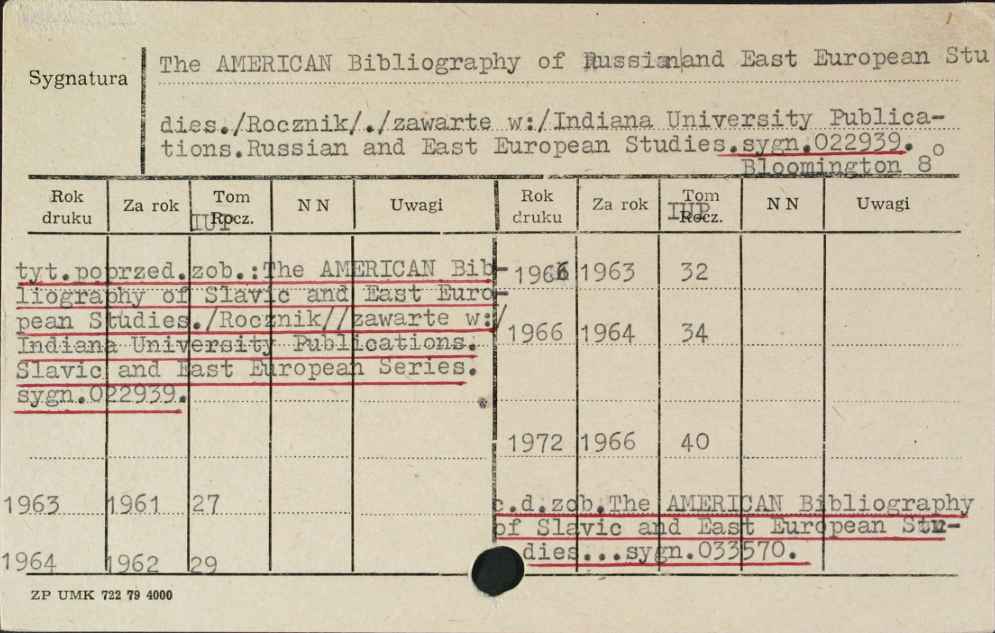 Sygnatura
The AMERICAN Bibliography of Russian and East European Stu
dies./Rocznik/./zawarte w:/Indiana University Publica-
tions.Russian and East European Studies.sygn.022939.
Bloomington 8o
Rok druku Za rok Tom Rocz. IUP NN Uwagi Rok druku Za rok Tom Rocz. IUP NN Uwagi
tyt.poprzed.zob.:The AMERICAN Bib-
liography of Slavic and East Euro-
pean Studies./Rocznik//zawarte w:/
Indiana University Publications.
Slavic and East European Series.
sygn.022939.
1963 1961 27
1964 1962 29
1966 1963 32
1966 1964 34
1972 1966 40
c.d.zob.The AMERICAN Bibliography
of Slavic and East European Stu-
dies...sygn.033570.
ZP UMK 722 79 4000